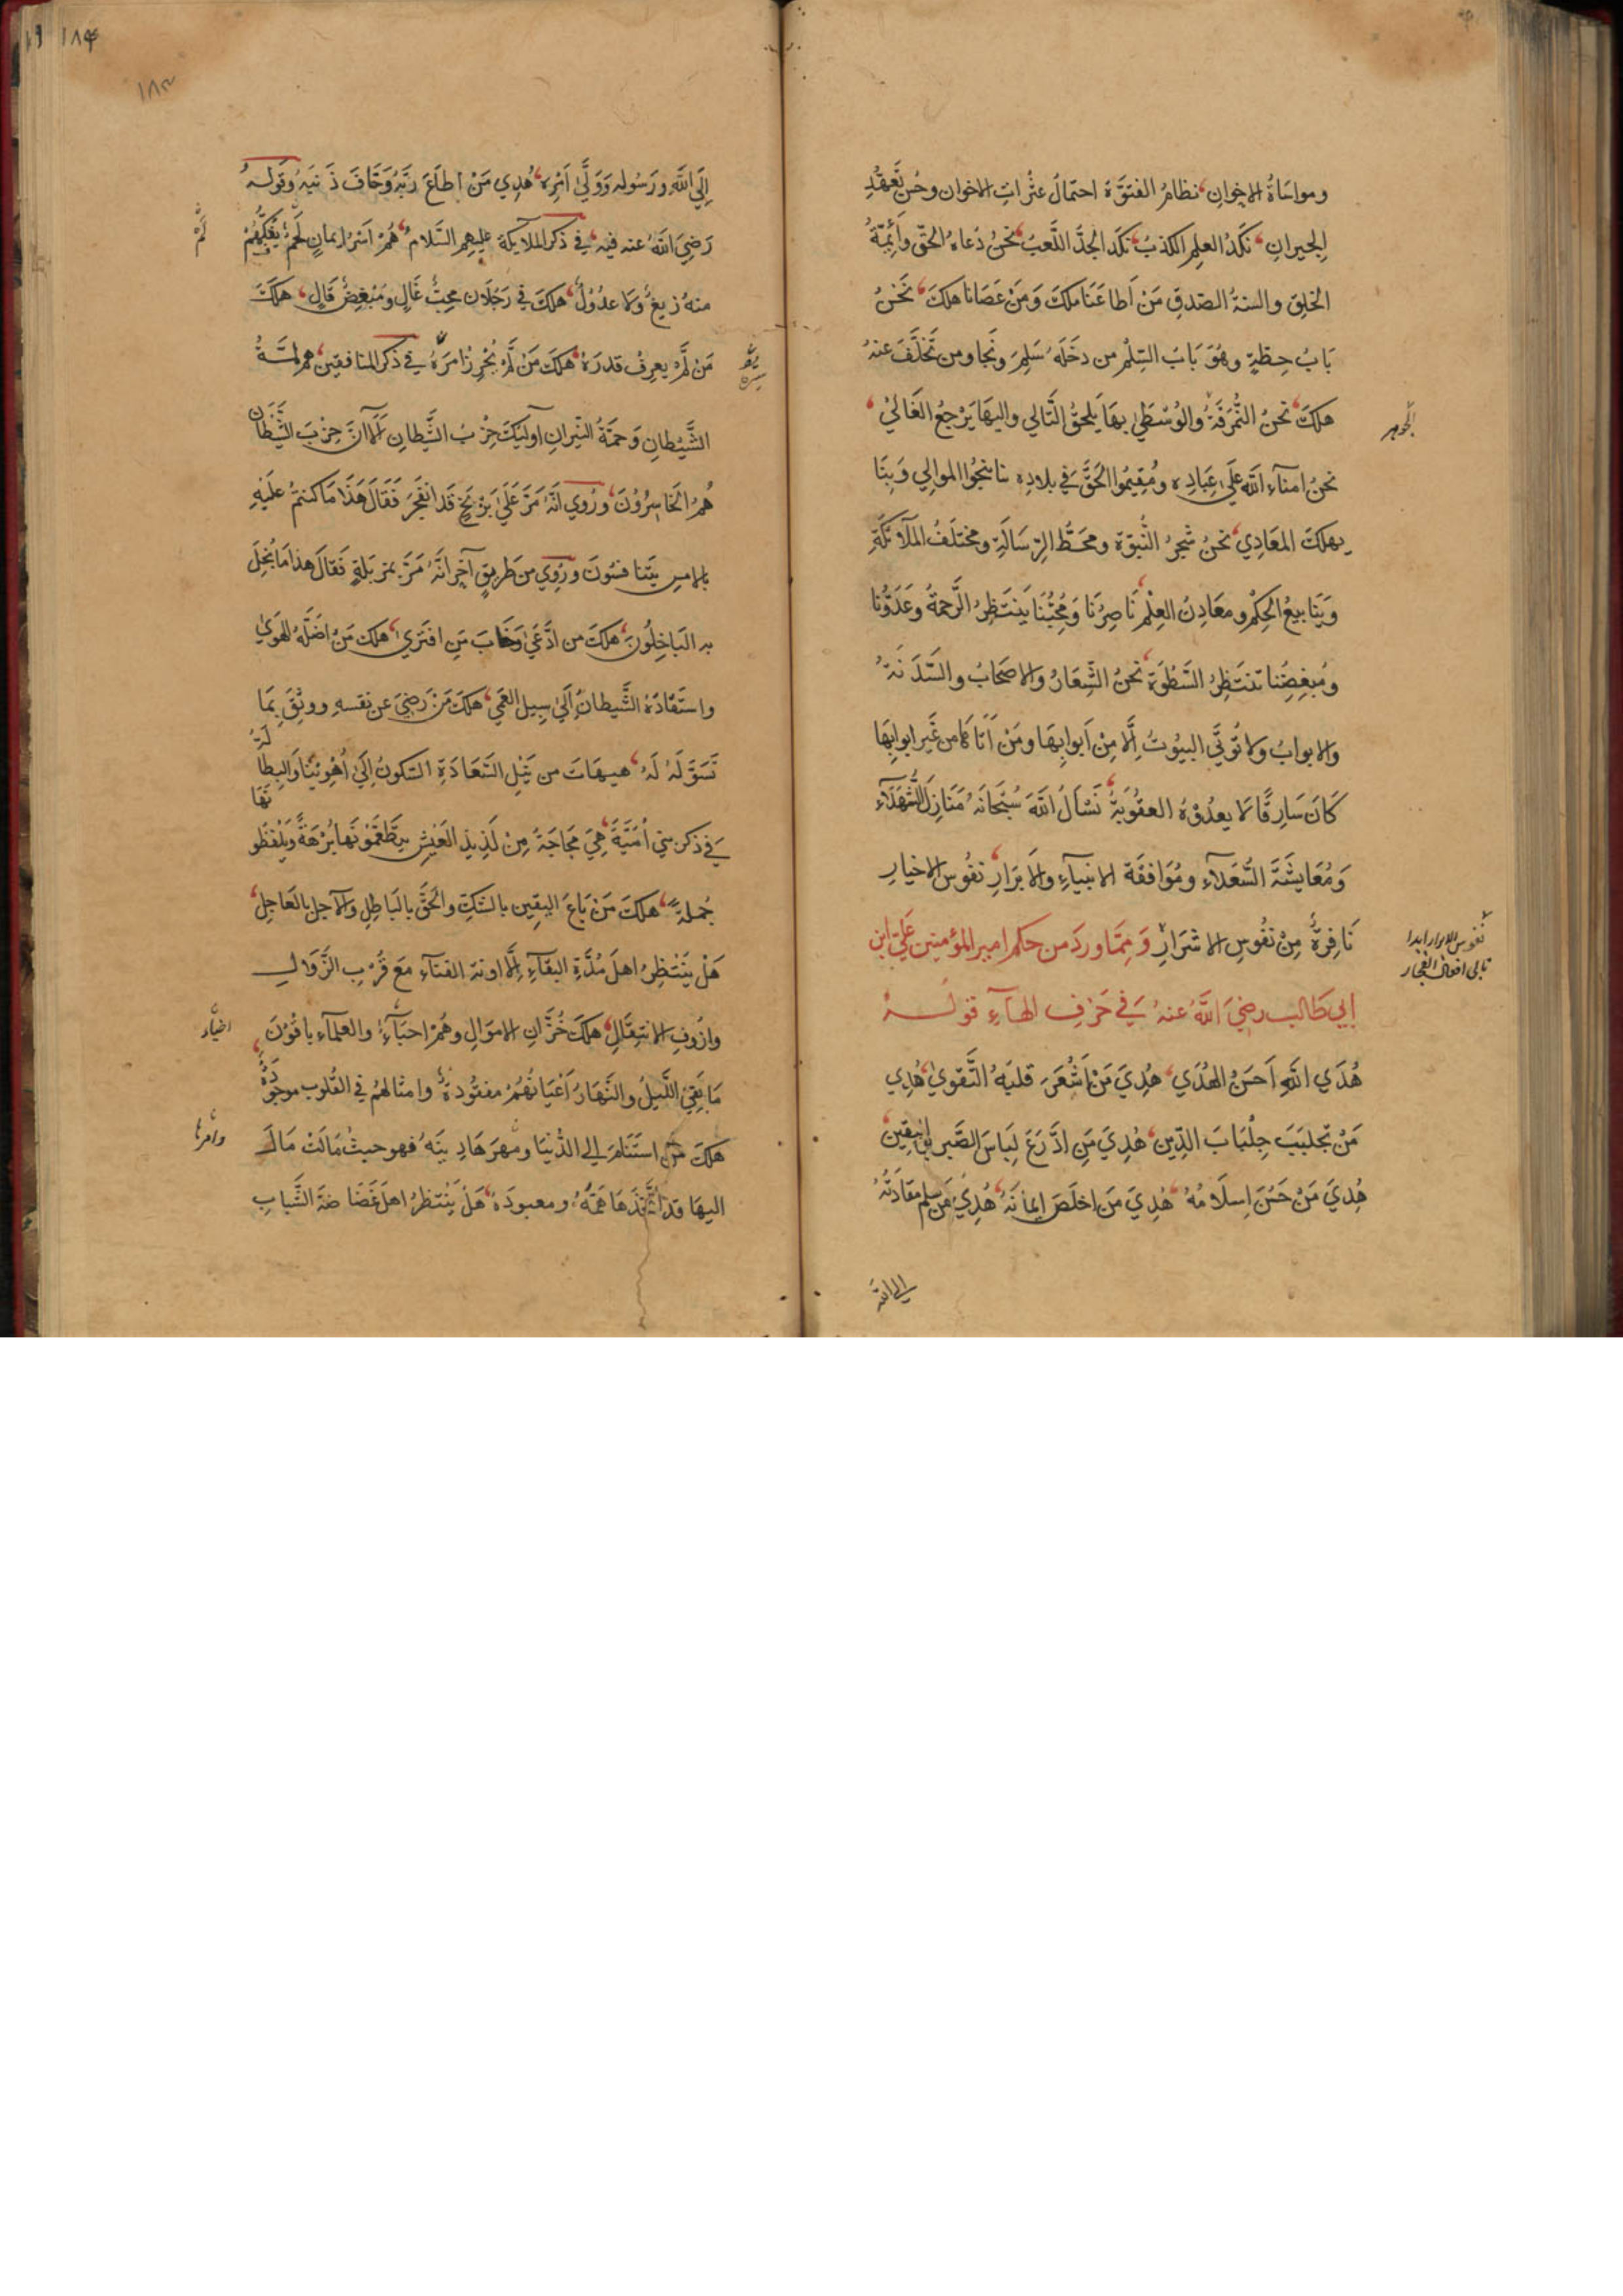 ومواسَاةُ الاخوانِ نظامُ الفتوَّة احتمالُ عثراتِ الاخوان وحُسنُ تعهّدِ
الجيرانِ نكَدُ العلِم الكذبُ نكَد الجدِّ اللَّعبُ نحنُ دُعاة الحقِّ وأئِمّةُ
الخلقِ والسنةُ الصّدقِ مَنْ اَطاعَنَا ملكَ وَمَنْ عَصَانا هلكَ نَحْنُ
بَابُ حِطّةٍ وهُوَ بَابُ السّلِم من دخَلَهُ سَلِمَ ونَجا ومن تَخلَّفَ عنهُ
هلكَ نحنُ النُّمرقَةُ الوُسْطَي بهَا يَلحقُ التَّالي واليهَا يَرْجعُ الغَاليْ
نحنُ امنآء اللّه عَلَي عِبَادِه ومُقِيمُوا الحَقَّ في بلادِه بنا ينجُوا الموالِي وَبِنَا
يهلكُ المعَادِي نحنُ شجرُ النُّبوّة ومحَطُّ الرِّسَالَةِ ومختلَفُ الملآئكَةِ
وَيَنَابيعُ الحِكمِ ومعَادِنُ العِلْمِ نَاصِرُنَا وَمُحِبُّنَا يَنتَظِرُ الرَّحمةَ وعَدوُّنا
ومُبغِضُنا يَنتَظِرُ السَّطْوَة نحنُ الشّعَارُ والاصحَابُ والسَّدَنَةُ
والابوابُ ولا تُوتَي البيُوتُ اِلَّا مِنْ اَبوابِهَا ومَنْ اَتَاهَا من غَير ابوابِهَا
كَانَ سَارِقًا لا يعدُوْهُ العقُوبَةُ نَسْاَلُ اللّهَ سُبْحَانَهُ مَنَازلَ الشُّهَدآءِ
وَمُعَايشَةَ السُّعَدآءِ ومُوَافقَة الانبيآءِ والابرَارِ نفُوس الاخيارِ
نَافِرةٌ مِنْ نفُوسِ الاشرَارِ وَمِمَّا وردَ من حكم امير المؤمنين عَليّ ابن
ابي طَالب رضيَ اللّهُ عنهُ فَي حَرْفِ الهآءِ قولُهُ
هُدَي اللّهِ اَحسَنُ الهُدَي هُدِيَ مَنْ اَشْعَرَ قلبَهُ التَّقويٰ هُدِي
مَنْ تجلبَبَ جِلْبَابَ الدِّين هُدِيَ مَنِ ادَّرَعَ لبَاسَ الصَّبر واليقين
هُدِيَ مَنْ حَسُنَ اِسلَامُهُ هُدِيَ مَن اخلَصَ ايمانَهُ هُدِيَ مَن سلم مقادتَهُ
الي اللّه
نفوس الابرار ابدا
تابي افعال الفجار
اِلَي اللّهِ ورَسُولهِ وَوَلَّي اَمْرِه هُدِي مَنْ اطَاعَ ربَّهُ وَخَافَ ذَنبَهُ وقولُهُ
رَضيَ اللّهُ عنه فيه في ذكر الملايكة عليهم السَّلامُ هُمْ اُسَرآءُ ايمانٍ لَمْ يَفكّهُمْ
منهُ زيغٌ ولا عدُوْلٌ هلكَ في رَجُلَان محِبٌّ غَالٍ ومُبْغِضٌ قَالٍ هلكَ
مَنْ لَمْ يعرِفْ قدرَهُ هلكَ مَنْ لَمْ يُحْرِزْ امرَهُ في ذكر المنافقين هم لمَّةُ
الشَّيطانِ وَحمَةُ النّيرانِ اولَيِكَ حِزْبُ الشَّيطانِ اَلآ انَّ حِزْبَ الشَّيْطَانِ
هُمُ الخَاسِرُوْنَ ورُوِي اَنَّهُ مَرَّ عَلَي بَرْبَخٍ قَد انفَجَرَ فَقَالَ هَذَا مَا كنتمْ علَيْهِ
بالامس يتَنَا فسُونَ ورُوي من طَريقٍ آخر اَنَّهُ مَرَّ بمزبَلةٍ فَقالَ هذا مَا بُخِلَ
به البَاخِلُونَ هلكَ من ادَّعَيٰ وخَابَ مَنِ افترَي هلكَ مَنْ اضَلَّهُ الهَوَي
واستَقَادَهُ الشَّيطانُ اِلَيٰ سِبيل العَمي هلكَ مَنْ رَضِيَ عن نفسهِ ووثِقَ بمَا
تسوّلَهُ لَهُ هيهَاتَ من نَيْل السَّعَادَةِ السّكونُ اِلَي الهُوَيْنَا والبطالَةُ
في ذكر بني اُميَّةَ هِيَ مجَاجَةٌ مِنْ لَذِيذ العَيْش يتَطعّمُونَهَا بُرْهَةً وَيَلْفظُونَهَا
جُملةً هلكَ مَنْ بَاعَ اليقين بالشكِّ والحَقَّ بالبَاطِلِ والآجِلَ بالعَاجِلِ
هَلْ يَنْتَظِرُ اهل مُدَّةِ البقآءِ اِلَّا اونة الفنآءِ مَعَ قُرْبِ الزَّوَالِ
وازُوفِ الانتِقَالِ هلكَ خُزَّانُ الاموَالِ وهُمْ احيَآءٌ والعلمآء باقُوْنَ
مَا بَقِيَ اللَّيلُ والنَّهَارُ اَعْيَانُهُمْ مفقُودةٌ وامثالهُمْ في القُلوب موجودَةٌ
هلكَ من استَنَامَ اِلَي الدُّنْيَا ومهرَهَا دِينَهُ فهو حيثُ مَالَتْ مَالَ
اليهَا قد اتَّخَذَهَا هَمَّهُ ومعبودَهُ هَلْ يَنْتظِرُ اهلُ غَضَاضةَ الشَّبابِ
احياء